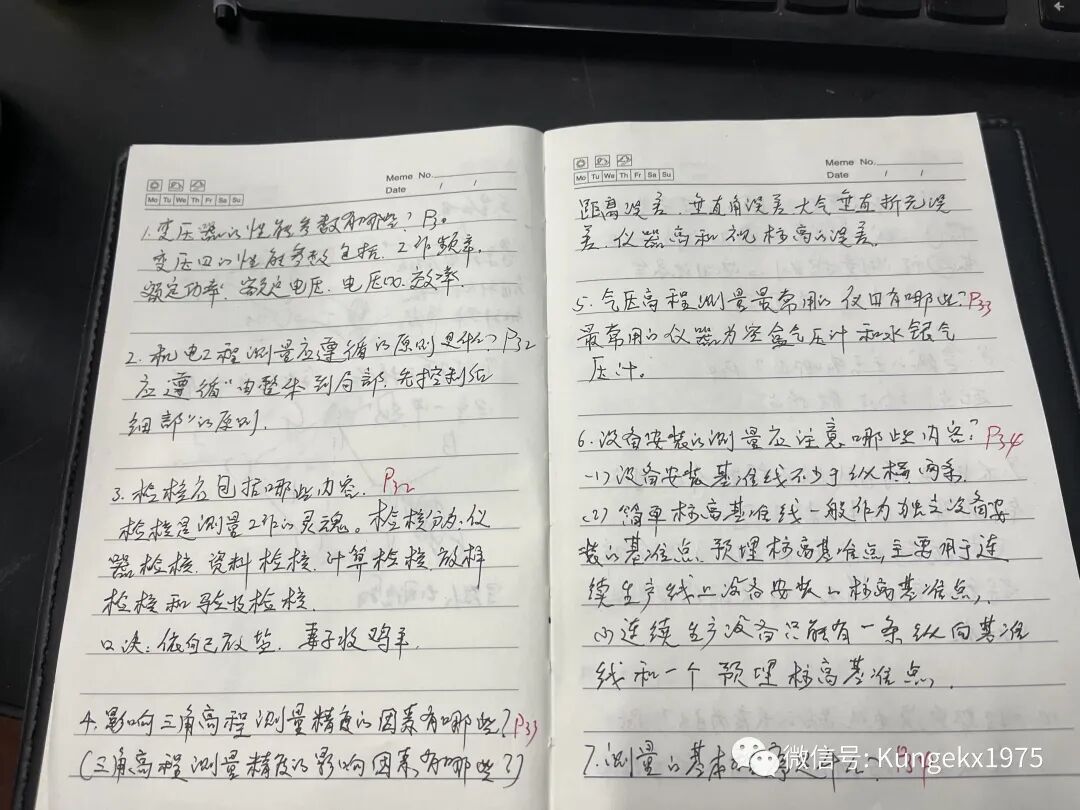 Meme No.
Date / /
Mo Tu We Th Fr Sa Su
1.变压器的性能参数有哪些?
变压四的性能参数包括:工作频率.
额定功率.额定电压.电压比.效率.
2.机电工程测量应遵循的原则是什么?P32
应遵循"由整体到局部.先控制后
细部"的原则.
3.检核应包括哪些内容.P32
检核是测量工作的灵魂。检核分为:仪
器检核.资料检核.计算检核.放样
检核和验收检核.
口决:依自己放盐.妻子收鸡
4.影响三角高程测量精度的因素有哪些?P33
(三角高程测量精度的影响因素有哪些?)
Meme No.
Date / /
Mo Tu We Th Fr Sa Su
距离误差.垂直角误差大气垂直折光误
差.仪器高和视标高的误差.
5.气压高程测量最常用的仪四有哪些?P33
最常用的仪器为空盒气压计和水银气
压计.
6.设备安装的测量应注意哪些内容?P34
(1)设备安装基准线不少于纵横两条.
(2)简单标高基准线一般作为独立设备安
装的基准点.预埋标高基准点主要用于连
续生产线上设备安装的标高基准点.
(3)连续生产设备只能有一条纵向基准
线和一个预埋标高基准点.
7.测量的基本
微信号: Kungekx1975